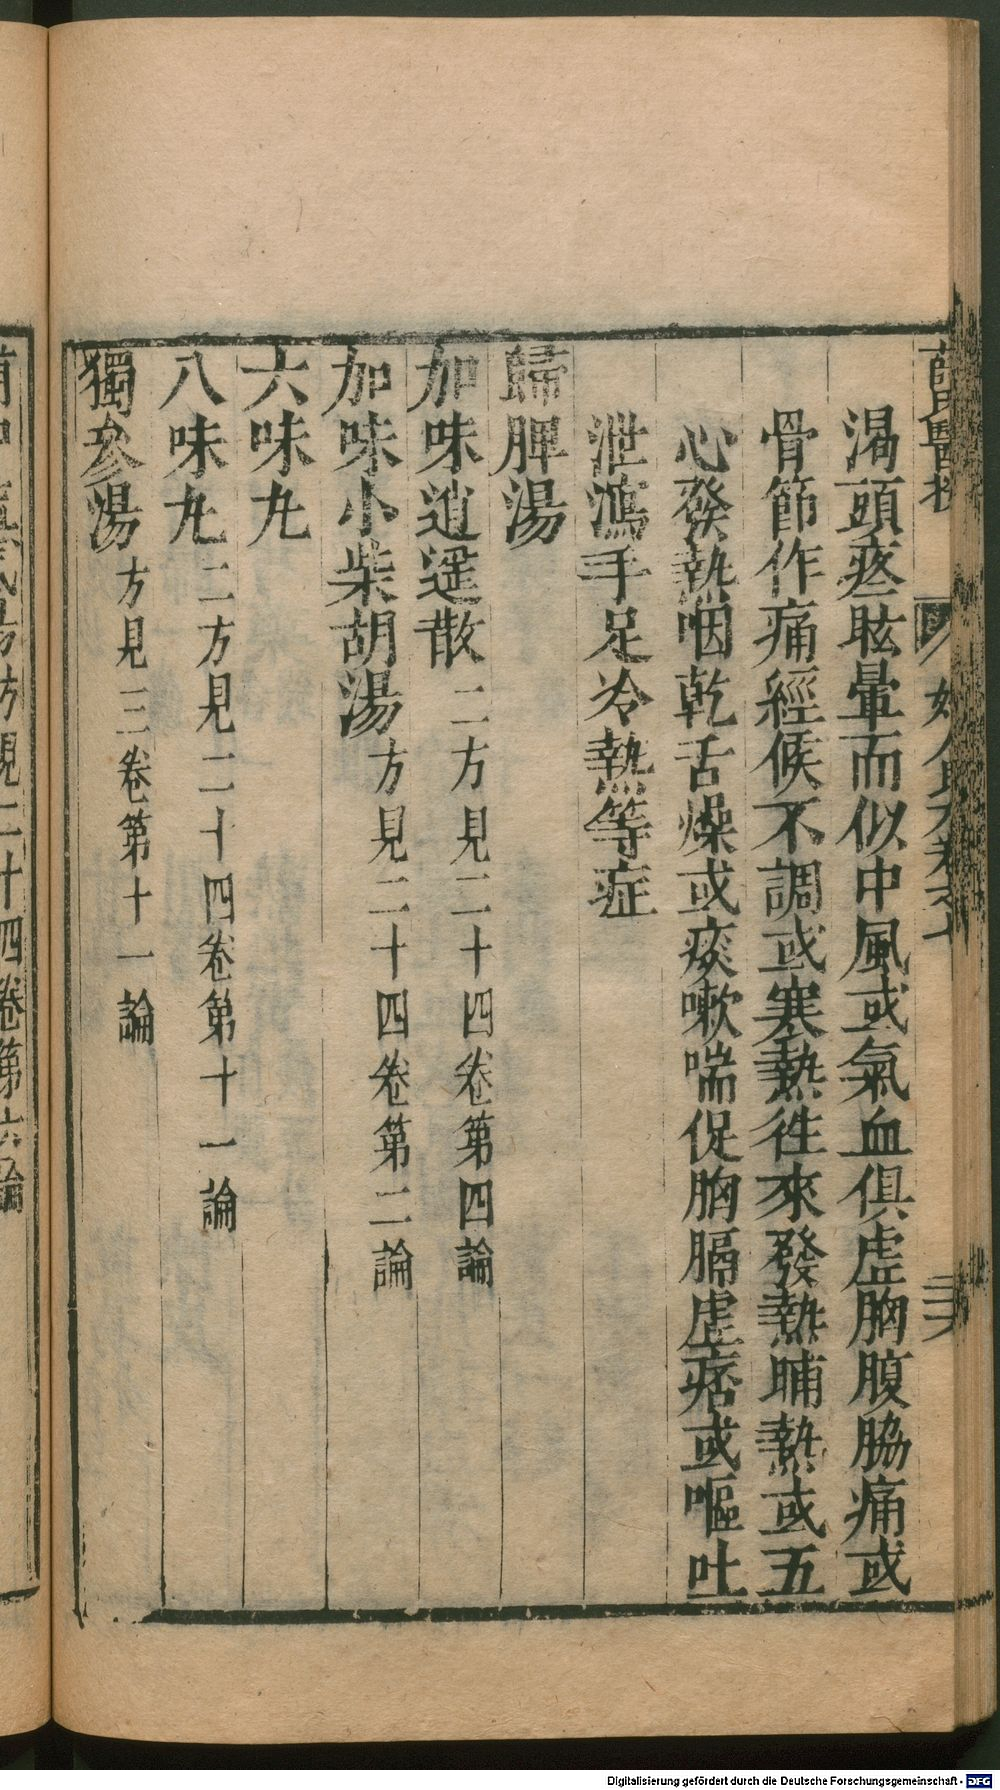 渴頭疼眩暈而似中風或氣血俱虛胸腹脇痛或
骨節作痛經候不調或寒熱徃來發熱晡熱或五
心發熱咽乾舌燥或痰嗽喘促胸膈虛痞或嘔吐
泄瀉手足冷熱等症
歸脾湯
加味逍遥散 二方見二十四卷第四論
加味小柴胡湯 方見二十四卷第二論
六味丸
八味丸 二方見二十四卷第十一論
獨參湯 方見三卷第十一論
方見二十四卷第六論
Digitalisierung gefördert durch die Deutsche Forschungsgemeinschaft - DFG